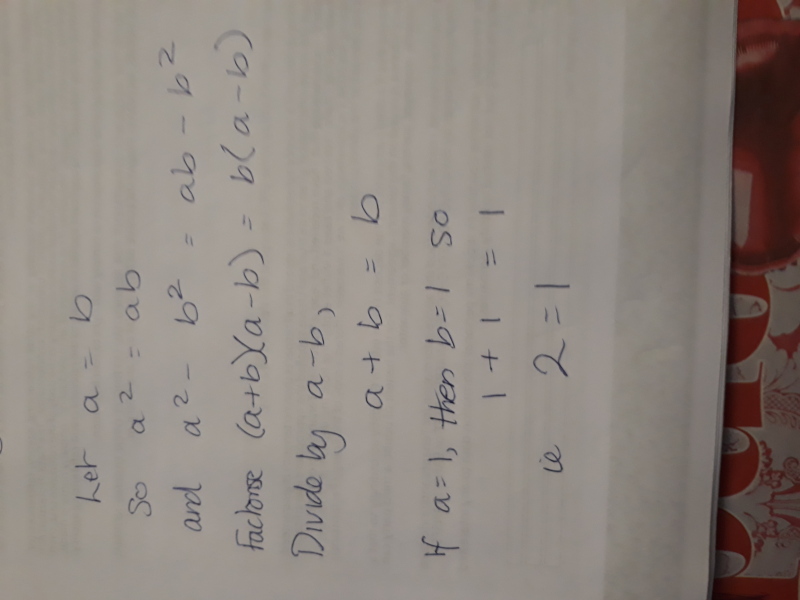 Let a = b
So a² = ab
and a² - b² = ab - b²
Factorise (a+b)(a-b) = b(a-b)
Divide by a-b,
a + b = b
If a=1, then b=1 so
1 + 1 = 1
ie 2 = 1